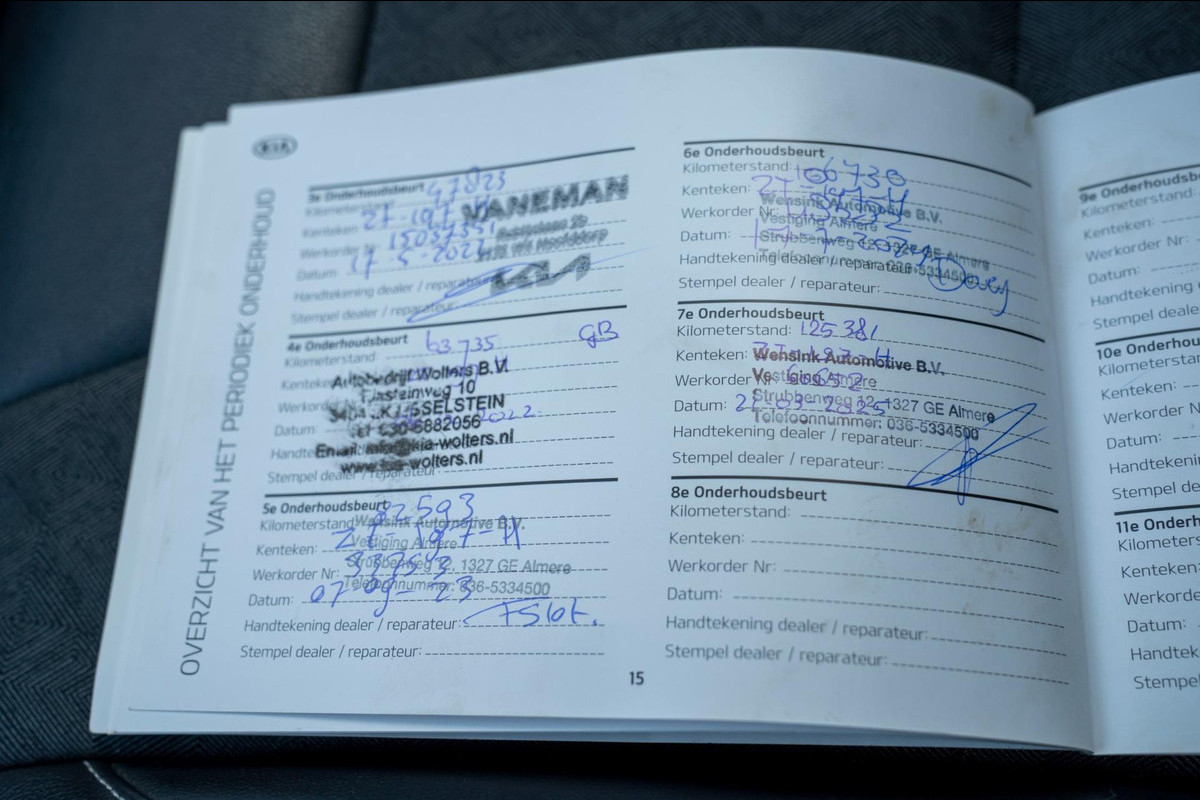 KIA
OVERZICHT VAN HET PERIODIEK ONDERHOUD
3e Onderhoudsbeurt
Kilometerstand 47823
Kenteken:
Werkorder Nr:
Datum: 17-5-2022
Handtekening dealer / reparateur:
Stempel dealer / reparateur:
VANEMAN
KIA
4e Onderhoudsbeurt
Kilometerstand 63735 GB
Kenteken
Werkorder
Datum: 2022
Stempel dealer / reparateur:
Autobedrijf Wolters B.V.
Einsteinweg 10
IJSSELSTEIN
Tel 030-6882056
Email: info@kia-wolters.nl
www.kia-wolters.nl
5e Onderhoudsbeurt
Kilometerstand 82593
Kenteken:
Werkorder Nr:
Datum: 07-09-23
Handtekening dealer / reparateur:
Stempel dealer / reparateur:
Wensink Automotive B.V.
Vestiging Almere
Strubbenweg 12, 1327 GE Almere
Telefoonnummer: 036-5334500
6e Onderhoudsbeurt
Kilometerstand: 106730
Kenteken:
Werkorder Nr:
Datum:
Handtekening dealer / reparateur:
Stempel dealer / reparateur:
Wensink Automotive B.V.
Vestiging Almere
Strubbenweg 12, 1327 GE Almere
Telefoonnummer: 036-5334500
7e Onderhoudsbeurt
Kilometerstand: 125381
Kenteken:
Werkorder Nr:
Datum: 03-2025
Handtekening dealer / reparateur:
Stempel dealer / reparateur:
Wensink Automotive B.V.
Vestiging Almere
Strubbenweg 12, 1327 GE Almere
Telefoonnummer: 036-5334500
8e Onderhoudsbeurt
Kilometerstand:
Kenteken:
Werkorder Nr:
Datum:
Handtekening dealer / reparateur:
Stempel dealer / reparateur:
15
9e
Kilometerstand
Kenteken:
Werkorder Nr:
Datum:
Handtekening
Stempel dealer
10e
Kilometersta
Kenteken:
Werkorder N
Datum:
Handtekenin
Stempel de
11e Onderh
Kilometers
Kenteken:
Werkorde
Datum:
Handtek
Stempel